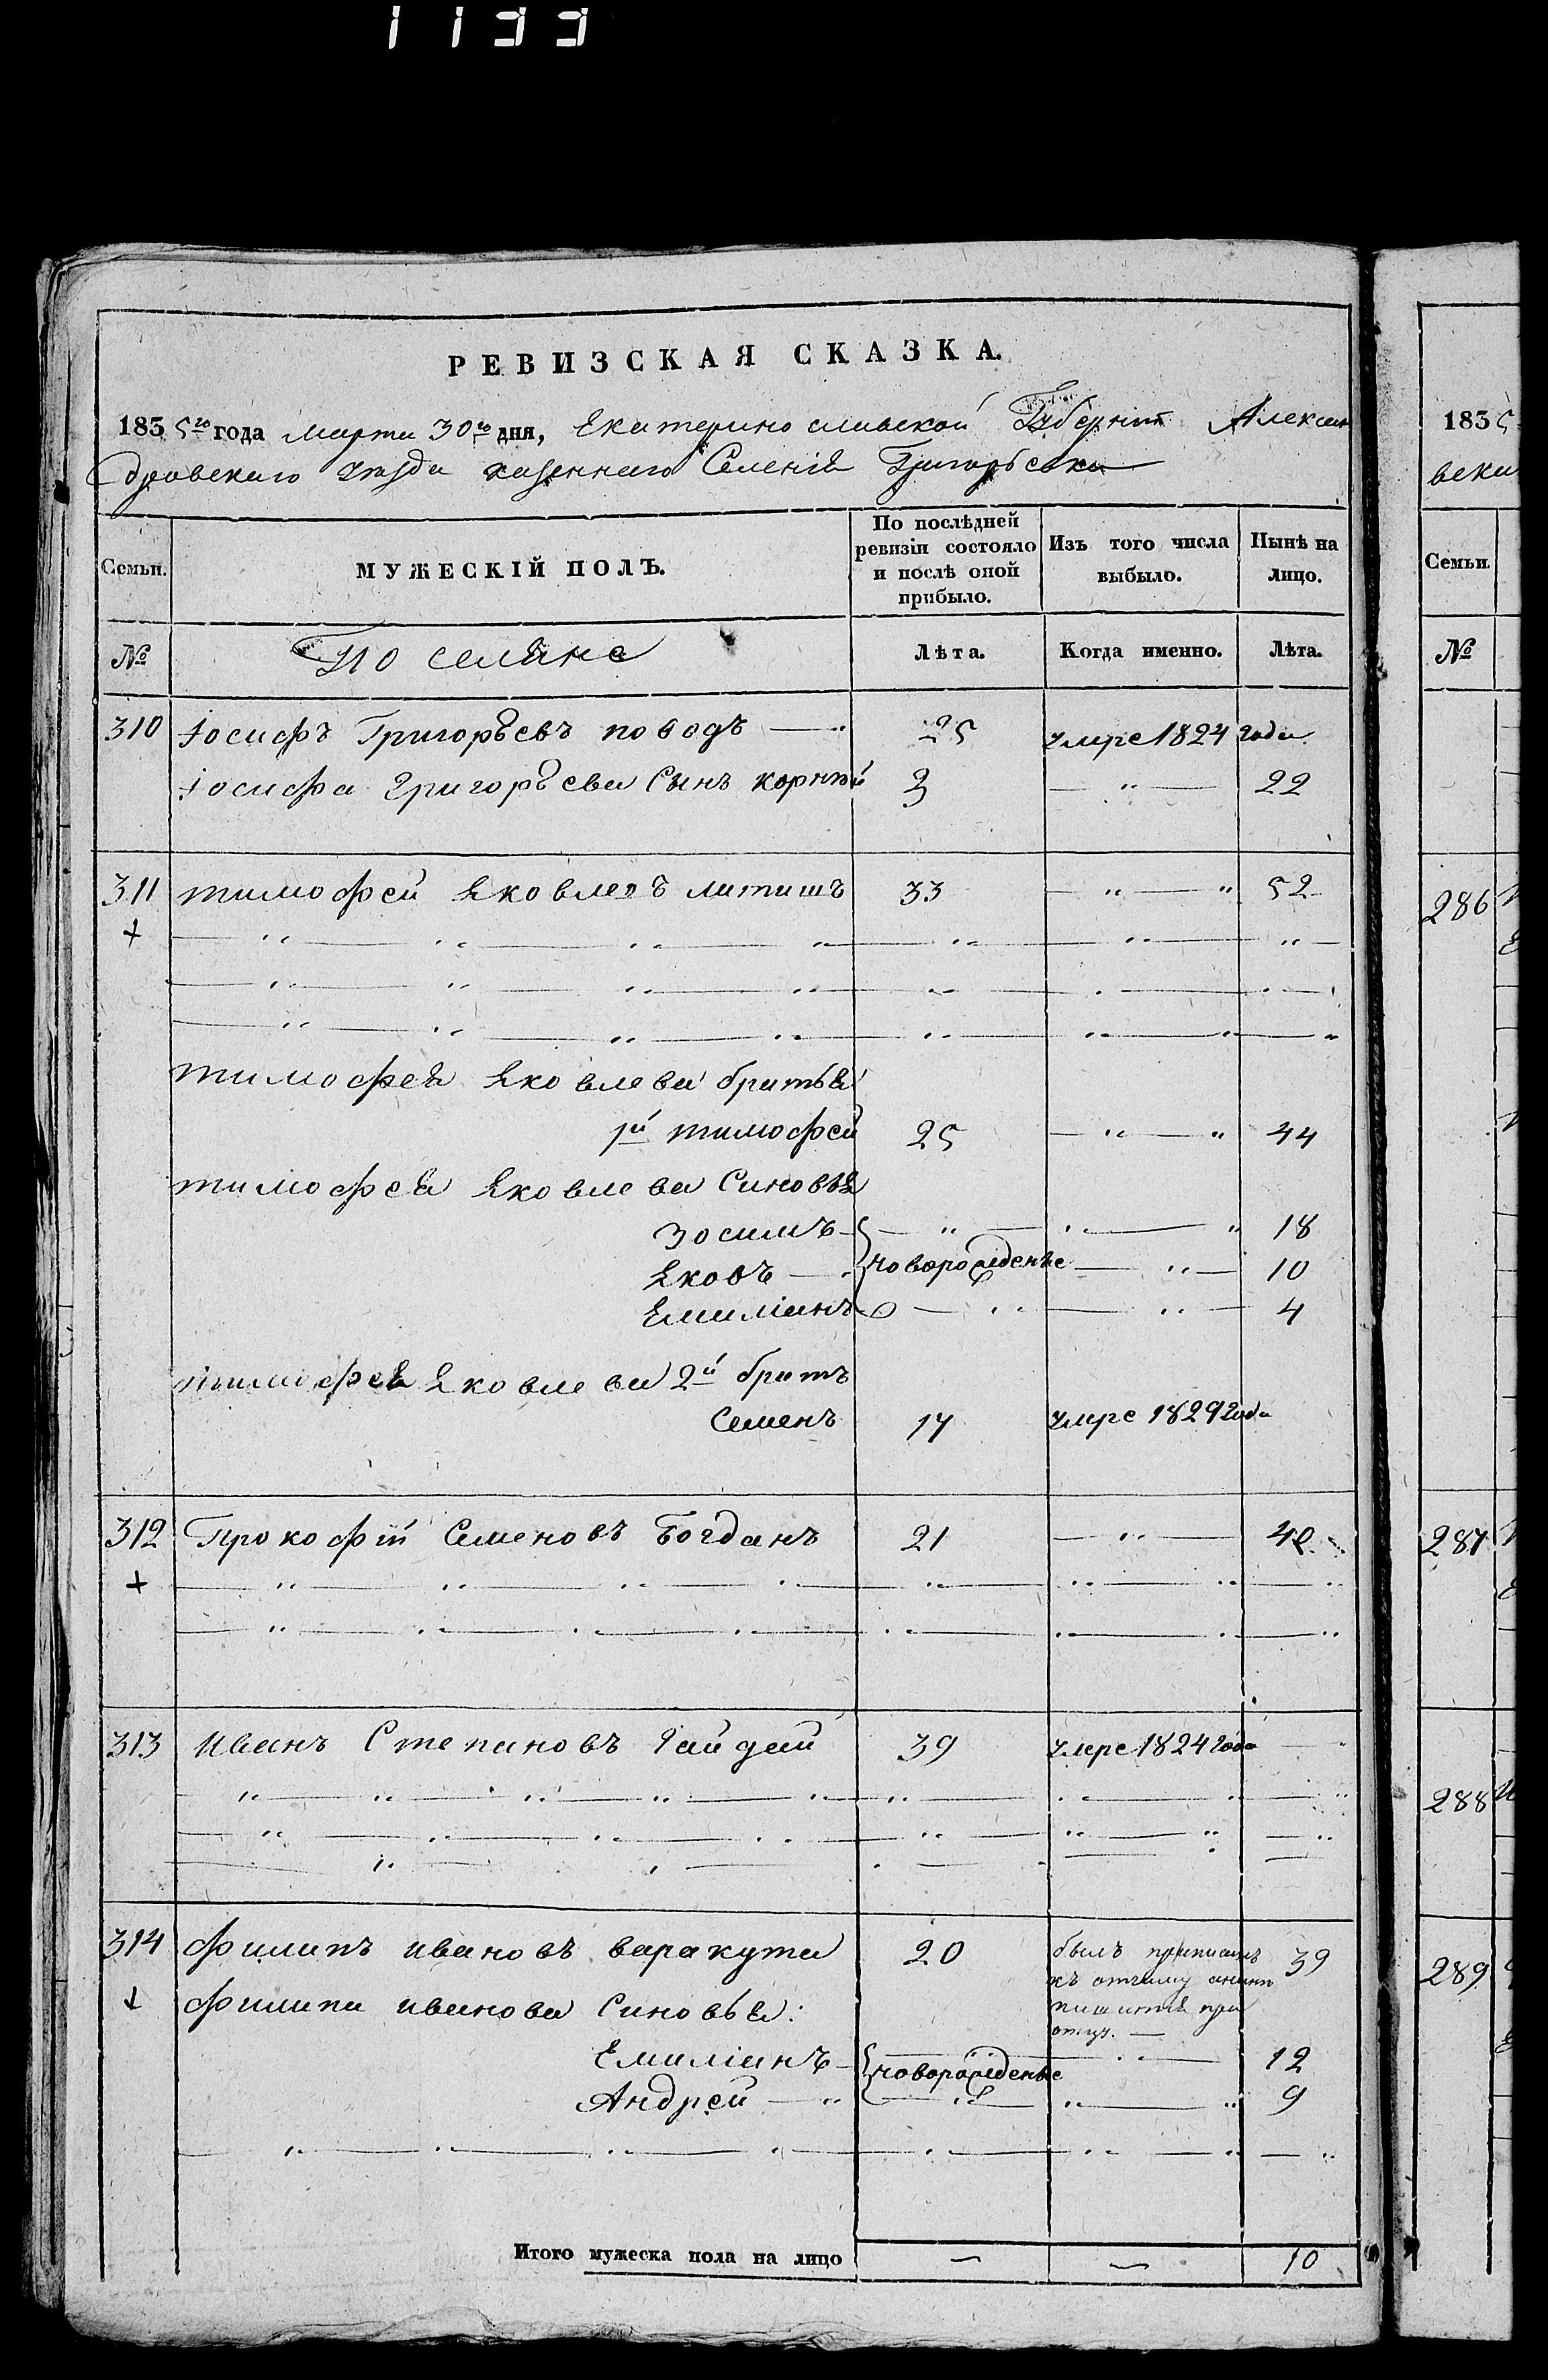 1133
РЕВИЗСКАЯ СКАЗКА.
1835го года Марта 30го дня, Екатеринославской Губерніи Алексан
дровскаго уезда казеннаго Селенія Григорьевки
Семьи.
МУЖЕСКІЙ ПОЛЪ.
По послѣдней ревизіи состояло и послѣ оной прибыло.
Изъ того числа выбыло.
Нынѣ на лицо.
№
Поселяне
Лѣта.
Когда именно.
Лѣта.
310 Іосифъ Григорьевъ поводъ 25 умре 1824 года
Іосифа Григорьева Сынъ корнѣй 3 22
311 тимофей Яковлевъ латишъ 33 52
+
тимофея Яковлева братья
1й тимофей 25 44
тимофея Яковлева Синовья
Зосимъ 18
Яковъ новорожденые 10
Емиліанъ 4
тимофея Яковлева 2й братъ
Семенъ 17 умре 1829 года
312 Прокофій Семеновъ Богданъ 21 40
+
313 Иванъ Степановъ Гайдай 39 умре 1824 года
314 Филипъ Ивановъ варакута 20 былъ приписанъ 39
къ отчиму
при
+ Филипа Иванова Синовья:
Емиліанъ новорожденые 12
Андрей 9
Итого мужеска пола на лицо 10
1835
вски
Семьи.
№
286
287
288
289